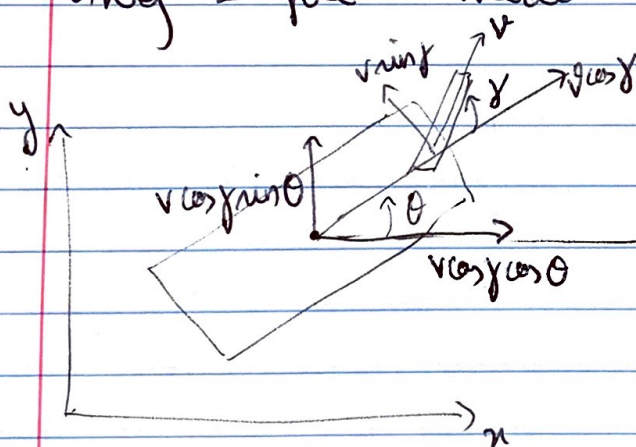 v
v sinγ
v cosγ
γ
y
v cosγ sinθ
θ
v cosγ cosθ
x